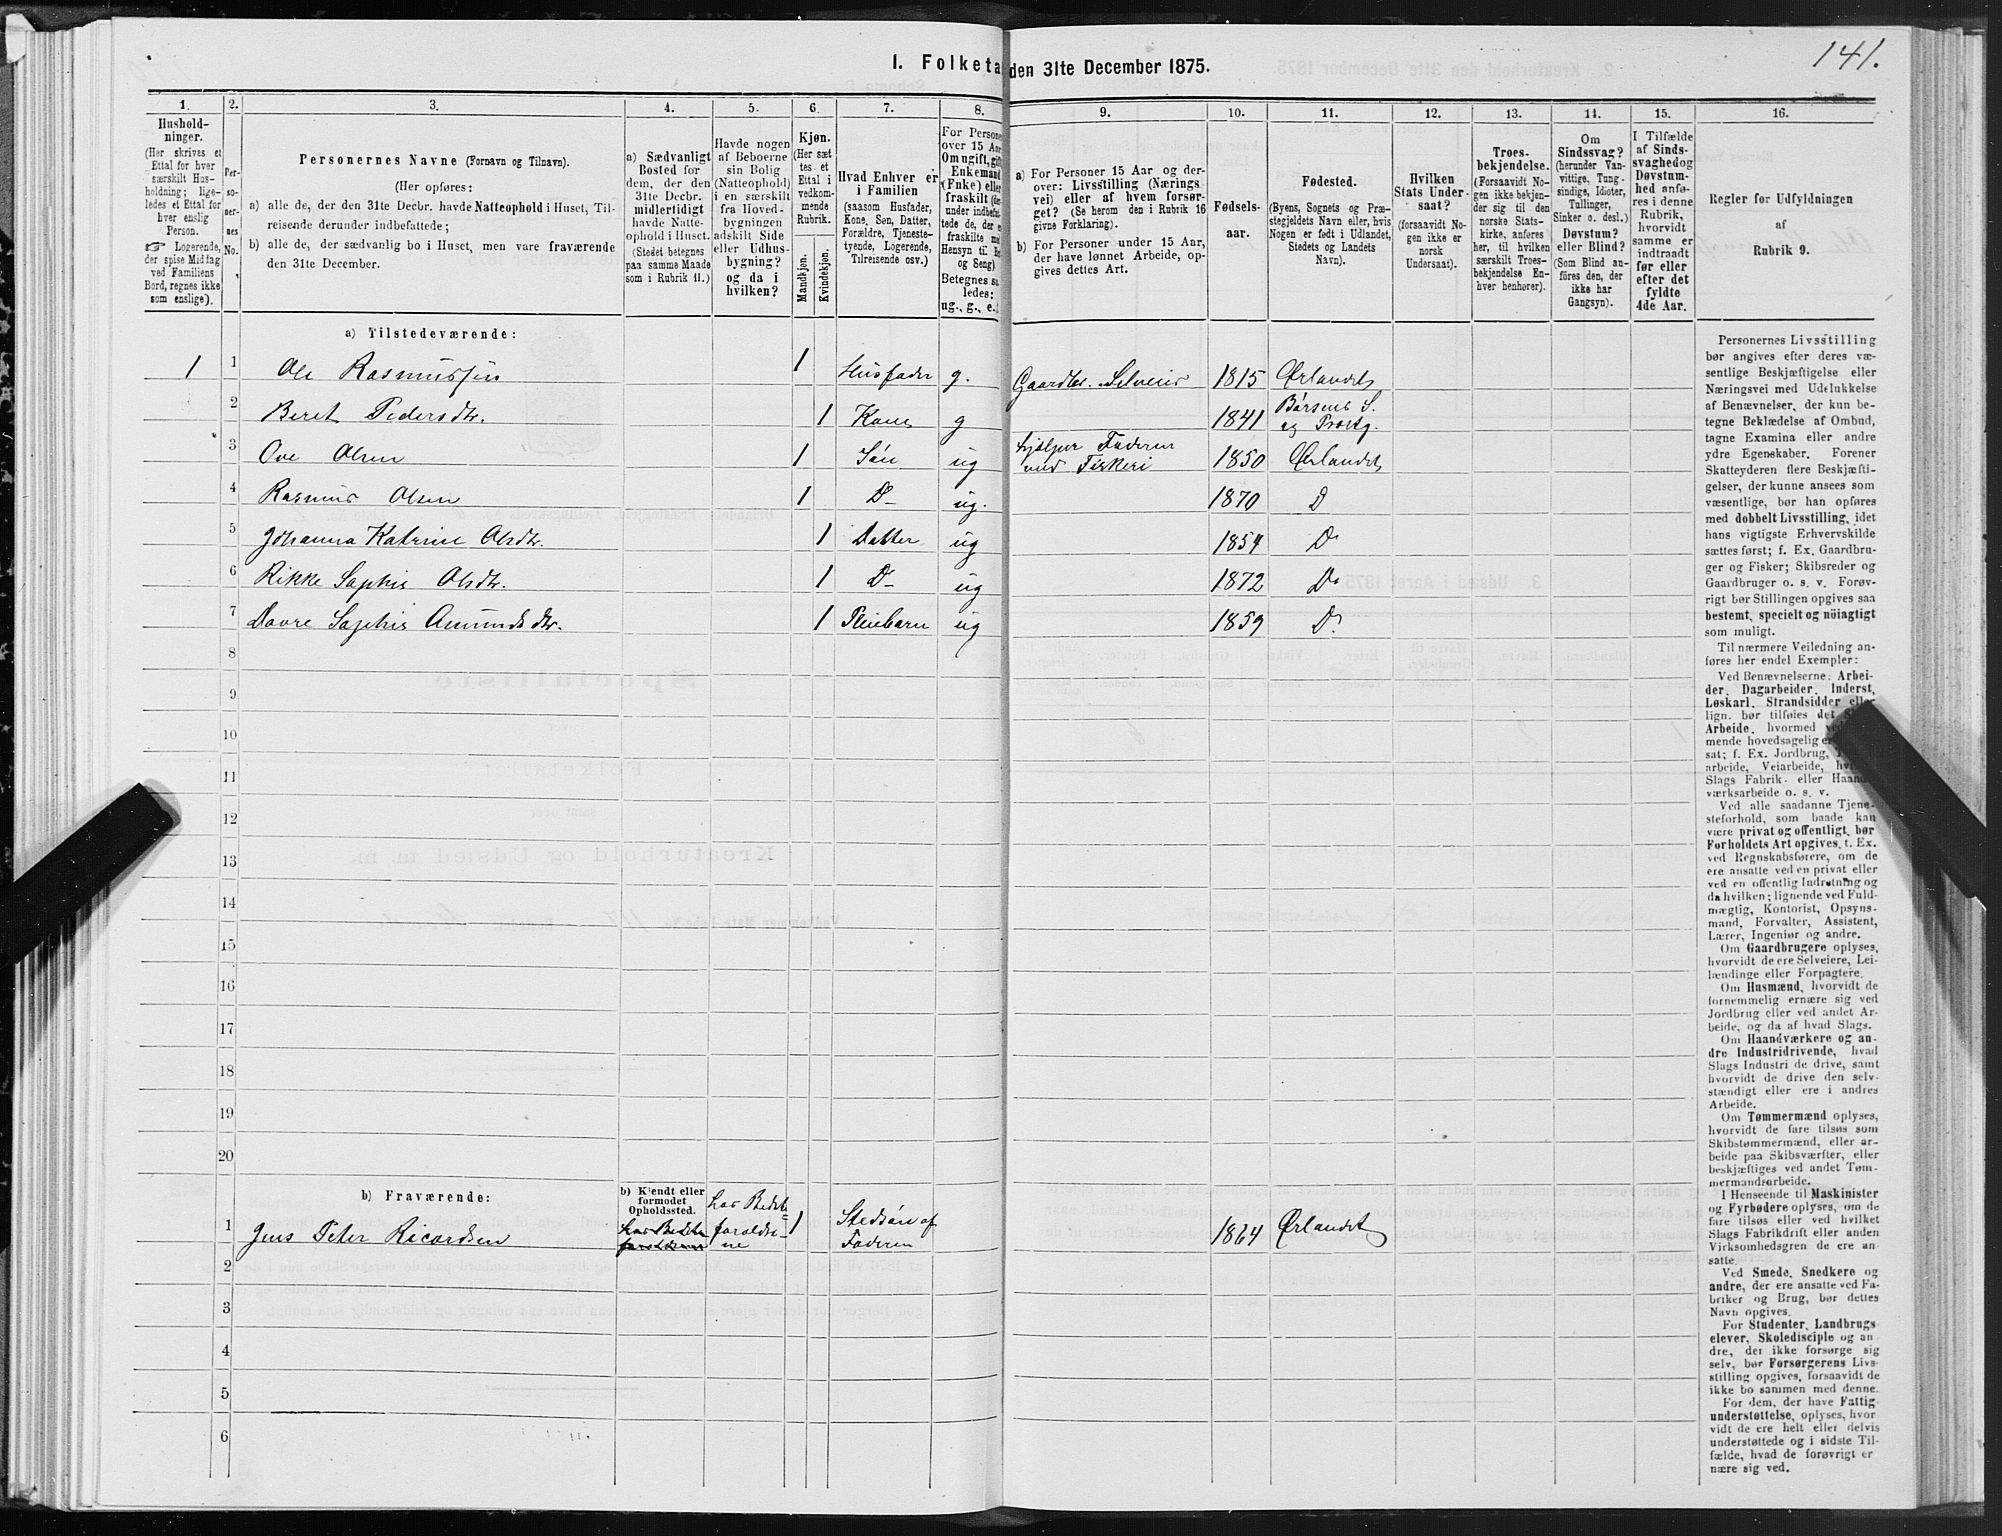 141.
I. Folketa den 31te December 1875.
1. 2. 3. 4. 5. 6. 7. 8. 9. 10. 11. 12. 13. 14. 15. 16.
Hushold-
ninger.
(Her skrives et
Ettal for hver
særskilt Hus-
holdning; lige-
ledes et Ettal for
hver enslig
Person.
☞ Logerende,
der spise Middag
ved Familiens
Bord, regnes ikke
som enslige).
Per-
so-
ner-
nes
No.
Personernes Navne (Fornavn og Tilnavn).
(Her opføres:
a) alle de, der den 31te Decbr. havde Natteophold i Huset, Til-
reisende derunder indbefattede;
b) alle de, der sædvanlig bo i Huset, men vare fraværende
den 31te December.
a) Sædvanligt
Bosted for
dem, der den
31te Decbr.
midlertidigt
havde Natte-
ophold i Huset.
(Stedet betegnes
paa samme Maade
som i Rubrik 11.)
Havde nogen
af Beboerne
sin Bolig
(Natteophold)
i en særskilt
fra Hoved-
bygningen
adskilt Side
eller Udhus-
bygning?
og da i
hvilken?
Kjøn.
(Her sæt
tes et
Ettal i
vedkom-
mende
Rubrik.
Mandkjøn.
Kvindekjøn.
Hvad Enhver er
i Familien
(saasom Husfader,
Kone, Søn, Datter,
Forældre, Tjeneste-
tyende, Logerende,
Tilreisende osv.)
For Persone
over 15 Aa
Om ugift, gift
Enkemand
(Enke) elle
fraskilt (de
under indbefa
tede de, der e
fraskilte m
Hensyn til Bo
og Seng)
Betegnes sa
ledes:
ug., g., e.
a) For Personer 15 Aar og der-
over: Livsstilling (Nærings
vei) eller af hvem forsør-
get? (Se herom den i Rubrik 16
givne Forklaring).
b) For Personer under 15 Aar,
der have lønnet Arbeide, op-
gives dettes Art.
Fødsels-
aar.
Fødested.
(Byens, Sognets og Præ-
stegjeldets Navn eller, hvis
Nogen er født i Udlandet,
Stedets og Landets
Navn).
Hvilken
Stats Under-
saat?
(forsaavidt No-
gen ikke er
norsk
Undersaat).
Troes-
bekjendelse.
(Forsaavidt No-
gen ikke bekjen-
der sig til den
norske Stats-
kirke, anføres
her, til hvilken
særskilt Troes-
bekjendelse En-
hver henhører).
Om
Sindssvag?
(herunder Van-
vittige, Tung-
sindige, Idioter,
Tullinger,
Sinker o. desl.)
Døvstum?
eller Blind?
(Som Blind an-
føres den, der
ikke har
Gangsyn).
I Tilfælde
af Sinds-
svaghed og
Døvstum-
hed anfø-
res i denne
Rubrik,
hvorvidt
samme er
indtraadt
før eller
efter det
fyldte
4de Aar.
Regler for Udfyldningen
af
Rubrik 9.
a) Tilstedeværende:
1 1 Ole Rasmussen 1 Husfader g. Gaardbr. Selveier 1815 Ørlandet
2 Beret Pedersdtr. 1 Kone g 1841 Børsens S.
og Prestg.
3 Ove Olsen 1 Søn ug hjelper Faderen
med Fiskeri 1850 Ørlandet
4 Rasmus Olsen 1 D- ug. 1870 D
5 Johanna Katrine Olsdtr. 1 Datter ug 1854 Do
6 Rikke Saphie Olsdtr. 1 D- ug 1872 Do
7 Davre Saphie Amundsdtr. 1 Pleiebarn ug 1859 D.
8
9
10
11
12
13
14
15
16
17
18
19
20
b) Fraværende:
b) Kjendt eller
formodet
Opholdssted.
1 Jens Peter Ricardsen hos Bedste
forældrene hos Bedste=
forældre-
ne 1 Stedsøn af
Faderen 1864 Ørlandet
2
3
4
5
6
Personernes Livsstilling
bør angives efter deres væ-
sentlige Beskjæftigelse eller
Næringsvei med Udelukkelse
af Benævnelser, der kun be-
tegne Beklædelse af Ombud,
tagne Examina eller andre
ydre Egenskaber. Forener
Skatteyderen flere Beskjæfti-
gelser, der kunne ansees som
væsentlige, bør han opføres
med dobbelt Livsstilling, idet
hans vigtigste Erhvervskilde
sættes først; f. Ex. Gaardbru-
ger og Fisker; Skibsreder og
Gaardbruger o. s. v. Forøv-
rigt bør Stillingen opgives saa
bestemt, specielt og nöiagtigt
som muligt.
Til nærmere Veiledning an-
føres her endel Exempler:
Ved Benævnelserne: Arbei-
der, Dagarbeider, Inderst,
Løskarl, Strandsidder eller
lign. bør tilføies det
Arbeide, hvormed
mende hovedsagelig er
sat; f. Ex. Jordbrug,
arbeide, Veiarbeide,
Slags Fabrik- eller Haand-
værksarbeide o. s. v.
Ved alle saadanne Tjene-
steforhold, som baade kan
være privat og offentligt, bør
Forholdets Art opgives, t. Ex.
ved Regnskabsførere, om de
ere ansatte ved en privat eller
ved en offentlig Indretning og
da hvilken; lignende ved Fuld-
mægtig, Kontorist, Opsyns-
mand, Forvalter, Assistent,
Lærer, Ingeniør og andre.
Om Gaardbrugere oplyses,
hvorvidt de ere Selveiere, Lei-
lændinge eller Forpagtere.
Om Husmænd, hvorvidt de
fornemmelig ernære sig ved
Jordbrug eller ved andet Ar-
beide, og da af hvad Slags.
Om Haandværkere og an-
dre Industridrivende, hvad
Slags Industri de drive, samt
hvorvidt de drive den selv-
stændigt eller ere i andres
Arbeide.
Om Tømmermænd oplyses,
hvorvidt de fare tilsøs som
Skibstømmermænd, eller ar-
beide paa Skibsværfter, eller
beskjæftiges ved andet Tøm-
mermandsarbeide.
I Henseende til Maskinister
og Fyrbødere oplyses, om de
fare tilsøs eller ved hvilket
Slags Fabrikdrift eller anden
Virksomhedsgren de ere an-
satte.
Ved Smede, Snedkere og
andre, der ere ansatte ved Fa-
briker og Brug, bør dettes
Navn opgives.
For Studenter, Landbrugs
elever, Skoledisciple og an
dre, der ikke forsørge sig
selv, bør Forsørgerens Livs-
stilling opgives, forsaavidt de
ikke bo sammen med denne.
For dem, der have Fattig
understøttelse, oplyses, hvor
vidt de ere helt eller delvis
understøttede og i sidste Til-
fælde, hvad de forøvrigt er
nære sig ved.